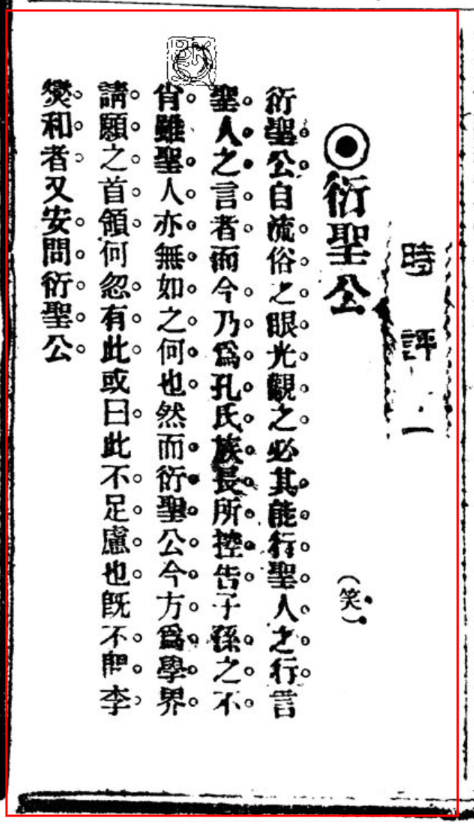 時評一
◉衍聖公
(笑)
衍聖公自流俗之眼光觀之必其能行聖人之行言
聖人之言者而今乃為孔氏族長所控告子孫之不
肖雖聖人亦無如之何也然而衍聖公今方為學界
請願之首領何忽有此或曰此不足慮也既不問李
燮和者又安問衍聖公